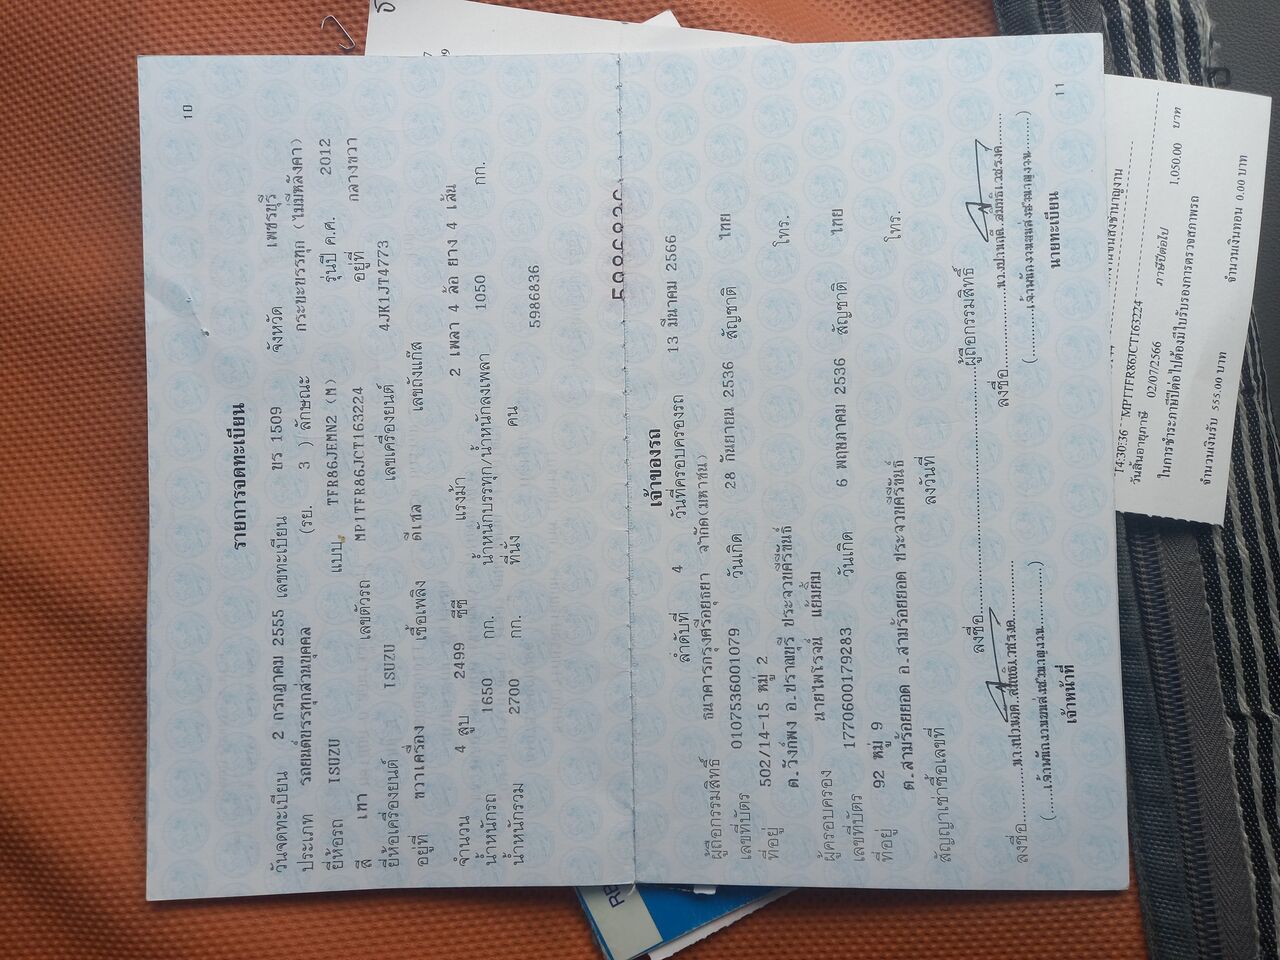 10
รายการจดทะเบียน
วันจดทะเบียน 2 กรกฎาคม 2555 เลขทะเบียน ขร 1509 จังหวัด เพชรบุรี
ประเภท รถยนต์บรรทุกส่วนบุคคล (รย. 3 ) ลักษณะ กระบะบรรทุก (ไม่มีหลังคา)
ยี่ห้อรถ ISUZU แบบ TFR86JEMN2 (M) รุ่นปี ค.ศ. 2012
สี เทา เลขตัวรถ MP1TFR86JCT163224 อยู่ที่ กลางขวา
ยี่ห้อเครื่องยนต์ ISUZU เลขเครื่องยนต์ 4JK1JT4773
อยู่ที่ ขวาเครื่อง เชื้อเพลิง ดีเซล เลขถังแก๊ส
จำนวน 4 สูบ 2499 ซีซี แรงม้า 2 เพลา 4 ล้อ ยาง 4 เส้น
น้ำหนักรถ 1650 กก. น้ำหนักบรรทุก/น้ำหนักลงเพลา 1050 กก.
น้ำหนักรวม 2700 กก. ที่นั่ง คน 5986836
5986836
เจ้าของรถ
ลำดับที่ 4 วันที่ครอบครองรถ 13 มีนาคม 2566
ผู้ถือกรรมสิทธิ์ ธนาคารกรุงศรีอยุธยา จำกัด(มหาชน)
เลขที่บัตร 0107536001079 วันเกิด 28 กันยายน 2536 สัญชาติ ไทย
ที่อยู่ 502/14-15 หมู่ 2 โทร.
ต.วังก์พง อ.ปราณบุรี ประจวบคีรีขันธ์
ผู้ครอบครอง นายไพโรจน์ แย้มยิ้ม
เลขที่บัตร 1770600179283 วันเกิด 6 พฤษภาคม 2536 สัญชาติ ไทย
ที่อยู่ 92 หมู่ 9 โทร.
ต.สามร้อยยอด อ.สามร้อยยอด ประจวบคีรีขันธ์
สัญญาเช่าซื้อเลขที่ ลงวันที่
ลงชื่อ ผู้ถือกรรมสิทธิ์
ลงชื่อ ลงชื่อ
เจ้าหน้าที่ นายทะเบียน
11
14:30:36 MP1TFR86JCT163224
วันสิ้นอายุภาษี 02/07/2566 ภาษีปีต่อไป 1,050.00 บาท
ในการชำระภาษีปีต่อไปต้องมีใบรับรองการตรวจสภาพรถ
จำนวนเงินรับ 555.00 บาท จำนวนเงินทอน 0.00 บาท